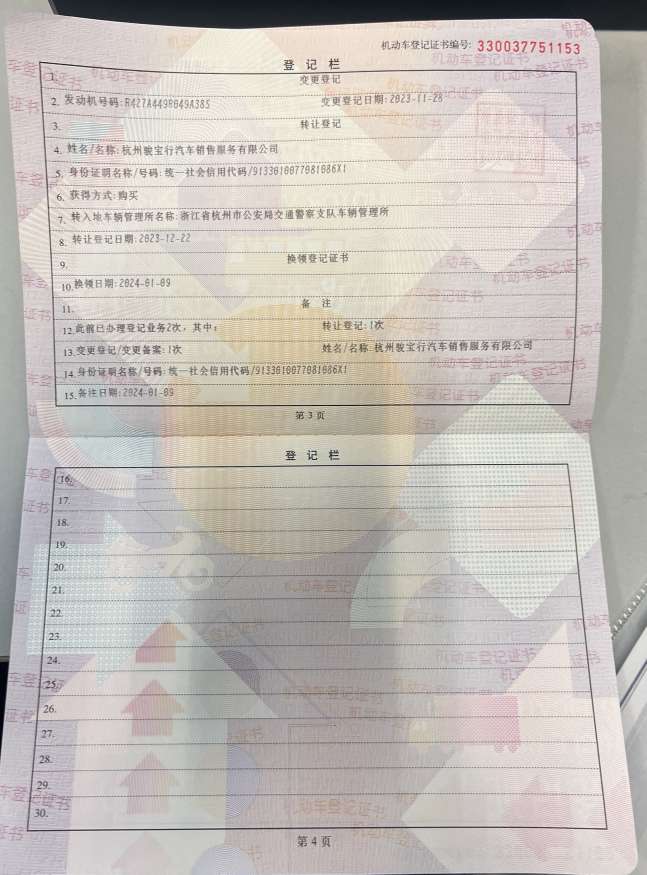 机动车登记证书编号: 330037751153
登 记 栏
1. 变更登记
2. 发动机号码:R427A449R649A385 变更登记日期:2023-11-28
3. 转让登记
4. 姓名/名称:杭州骏宝行汽车销售服务有限公司
5. 身份证明名称/号码:统一社会信用代码/9133010077081086X1
6. 获得方式:购买
7. 转入地车辆管理所名称:浙江省杭州市公安局交通警察支队车辆管理所
8. 转让登记日期:2023-12-22
9. 换领登记证书
10. 换领日期:2024-01-09
11. 备 注
12. 此前已办理登记业务2次，其中: 转让登记:1次
13. 变更登记/变更备案:1次 姓名/名称:杭州骏宝行汽车销售服务有限公司
14. 身份证明名称/号码:统一社会信用代码/9133010077081086X1
15. 备注日期:2024-01-09
第 3 页
登 记 栏
16.
17.
18.
19.
20.
21.
22.
23.
24.
25.
26.
27.
28.
29.
30.
第 4 页